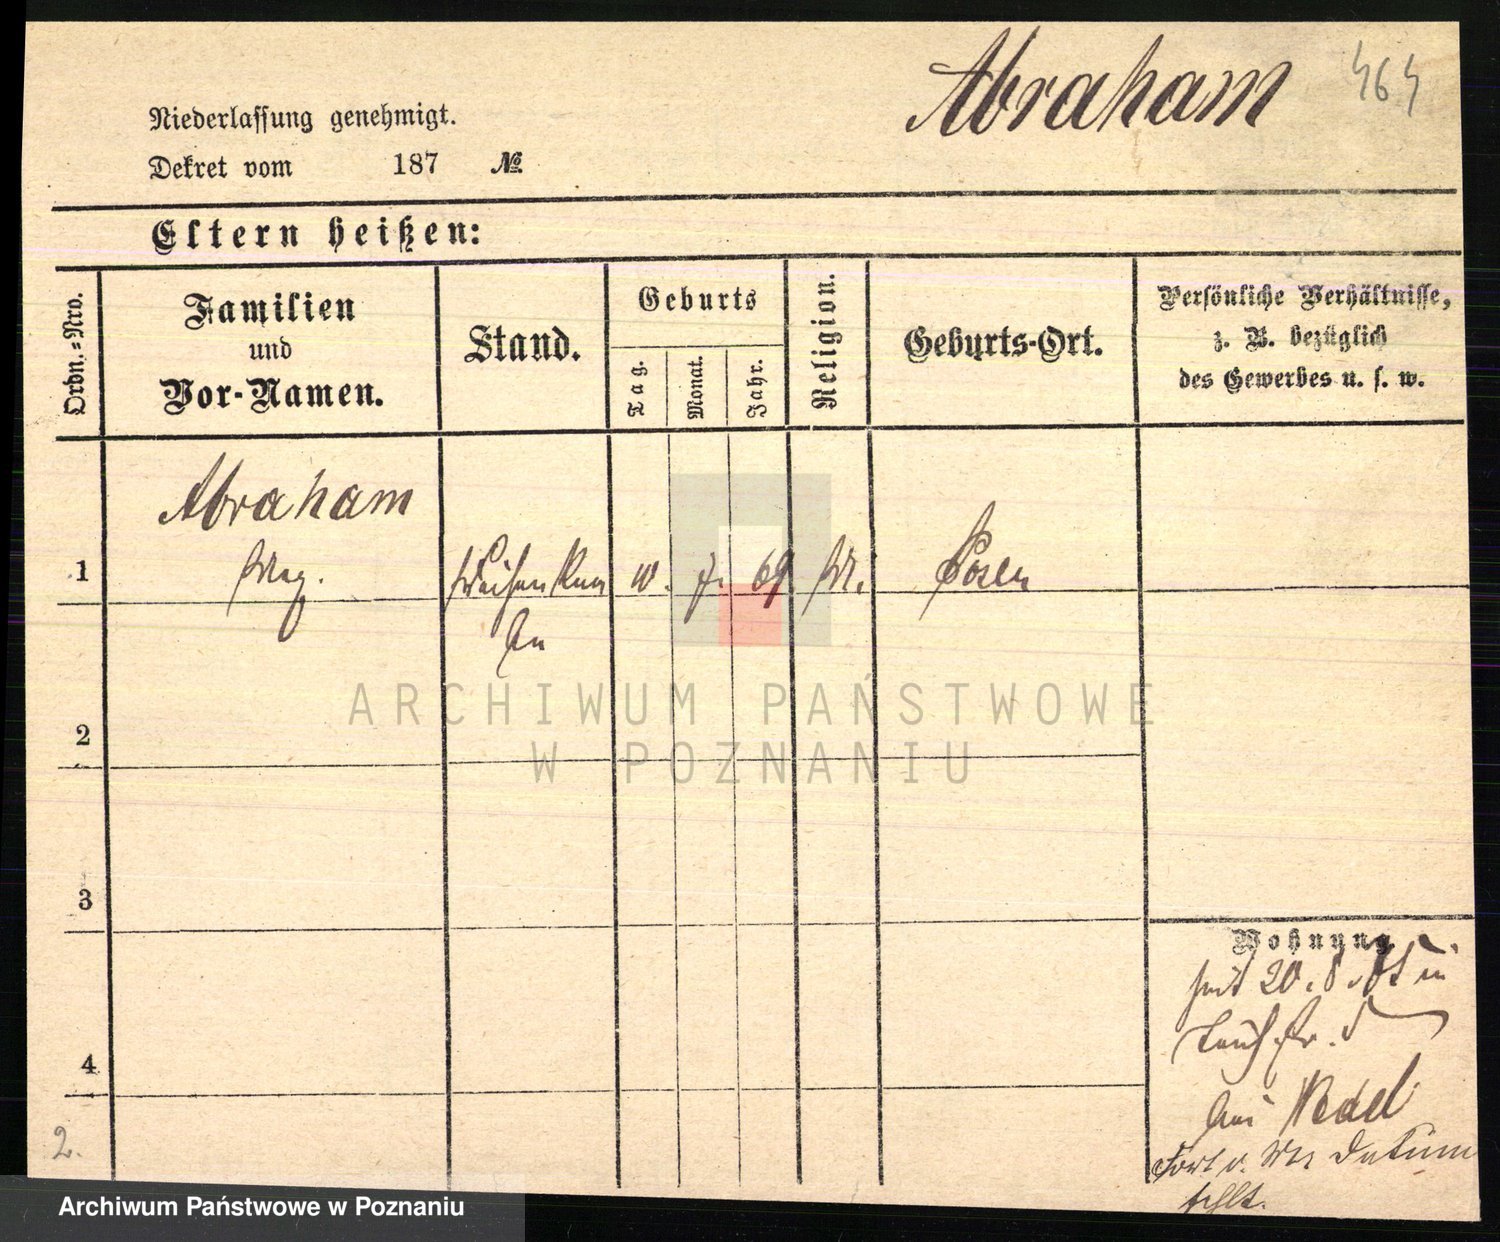 Abraham
464
Niederlassung genehmigt.
Dekret vom 187 №
Eltern heißen:
Ordn.=Nro.
Familien
und
Vor-Namen.
Stand.
Geburts
Tag.
Monat.
Jahr.
Religion.
Geburts-Ort.
Persönliche Verhältnisse,
z. B. bezüglich
des Gewerbes u. s. w.
Abraham
1
10. 7. 69 M. Posen
2
ARCHIWUM PAŃSTWOWE
W POZNANIU
3
Wohnung
seit 20. 8.
4
bei
Datum
fehlt.
2.
Archiwum Państwowe w Poznaniu